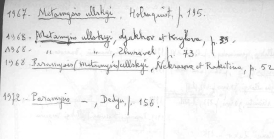 1967. Metamysis ullskyi. Holmquist, p. 195.
1968. Metamysis ullskyi, Djakhov et Kryllova, p. 33.
1968. " " , Zhuravel, p. 73.
1968 Paramysis (metamysis) ullskyi, Nekrasova et Rakitina, p. 52
1972 - Paramysis -, Dedyu, p. 156.